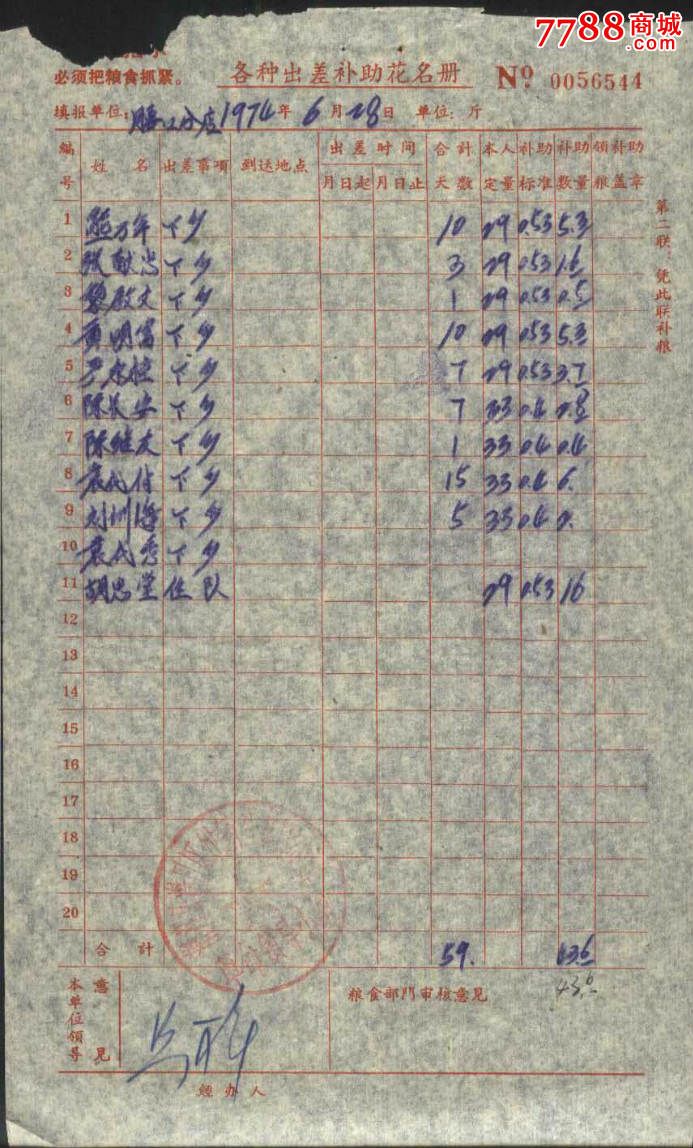 7788商城
.com
必须把粮食抓紧。
各种出差补助花名册
Nº 0056544
填报单位: 分店 1974年 6月28日 单位: 斤
编号 姓名 出差事项 到送地点 出差时间 月日起 月日止 合计天数 本人定量 补助标准 补助数量 领补助粮盖章
1 熊万年 下乡 10 29 0.53 5.3
2 张献忠 下乡 3 29 0.53 1.6
3 黎启文 下乡 1 29 0.53 0.5
4 黄明富 下乡 10 29 0.53 5.3
5 下乡 7 29 0.53 3.7
6 陈长安 下乡 7 33 0.4
7 陈继友 下乡 1 33 0.4 0.4
8 袁代付 下乡 15 33 0.4 6.
9 刘训海 下乡 5 33 0.4
10 袁代秀 下乡
11 胡忠堂 住队 29 0.53 16
12
13
14
15
16
17
18
19
20
合计 59.
43.
本单位领导意见
粮食部门审核意见
经办人
第二联:凭此联补粮